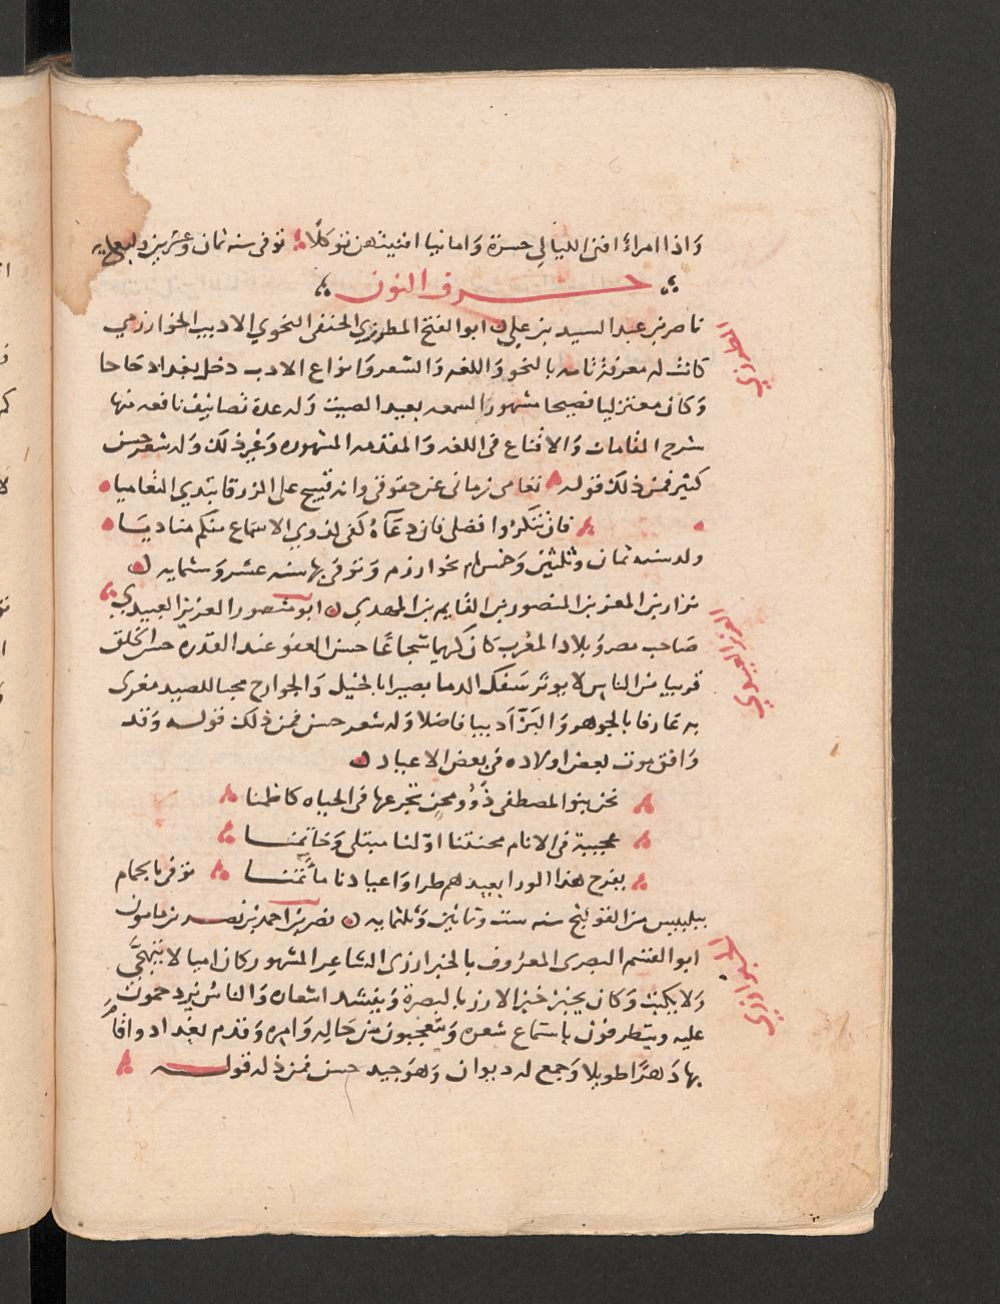 واذا امراء افنى الليالي حسرة وامانيا افنيتهن توكلا توفي سنه ثمان وعشرين واربعمايه
حرف النون
ناصر بن عبد السيد بن علي ابو الفتح المطرزي الحنفي النحوي الاديب الخوارزمي
المطرزي
كانت له معرفة تامه بالنحو واللغه والشعر وانواع الادب دخل بغداد حاجا
وكان معتزليا فصيحا مشهور السمعه بعيد الصيت وله عدة تصانيف نافعه منها
شرح المقامات والاقناع في اللغه والمقدمه المشهوره وغير ذلك وله شعر حسن
كثير فمن ذلك قوله تعامى زماني عن حقوقي وانه قبيح على الزرقا تبدي التعاميا
فان تنكروا فضلى فان دعآه كفى لذوي الاسماع منكم مناديا
ولد سنه ثمان وثلثين وخمس بخوارزم وتوفي بها سنه عشر وستمايه
نزار بن المعز بن المنصور بن القايم بن المهدي ابو منصور العزيز العبيدي
العزيز العبيدي
صاحب مصر وبلاد المغرب كان كريما شجاعا حسن العفو عند القدره حسن الخلق
قريبا من الناس لا يوثر سفك الدما بصيرا بالخيل والجوارح محبا للصيد مغرى
به عارفا بالجوهر والبز اديبا فاضلا وله شعر حسن فمن ذلك قوله وقد
وافق موت بعض اولاده في بعض الاعياد
نحن بنوا المصطفى ذوو محن تجرعها في الحياه كاظمنا
عجيبة في الانام محنتنا اولنا مبتلى وخاتمنا
يفرح هذا الورا بعيدهم طرا واعيادنا مآتمنا توفي بالحمام
ببلبيس من القولنج سنه ست وثمانين وثلثمايه نصر بن احمد بن نصر بن مامون
ابو القسم البصرى المعروف بالخبزارزى الشاعر المشهور كان اميا لا يتهجى
الخبزارزي
ولا يكتب وكان يخبز خبز الارز بالبصرة وينشد اشعاره والناس يزدحمون
عليه ويتطرفون باستماع شعره ويتعجبون من حاله وامره وقدم بغداد واقام
بها دهرا طويلا وجمع له ديوان وهو جيد حسن فمن ذلك قوله